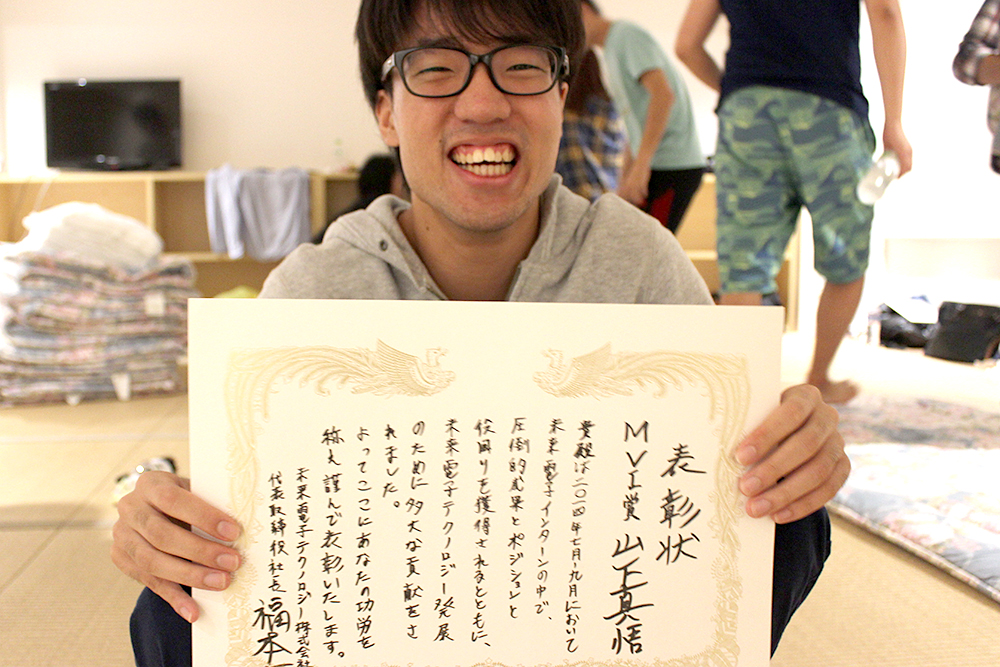 表彰状
MVI賞 山下真悟
貴殿は二〇一四年七月-九月において
未来電子インターンの中で、
圧倒的成果とポジションと
役回りを獲得されるとともに、
未来電子テクノロジー発展
のために多大な貢献をさ
れました。
よってここにあなたの功労を
称え謹んで表彰いたします。
未来電子テクノロジー株式会社
代表取締役社長 福本